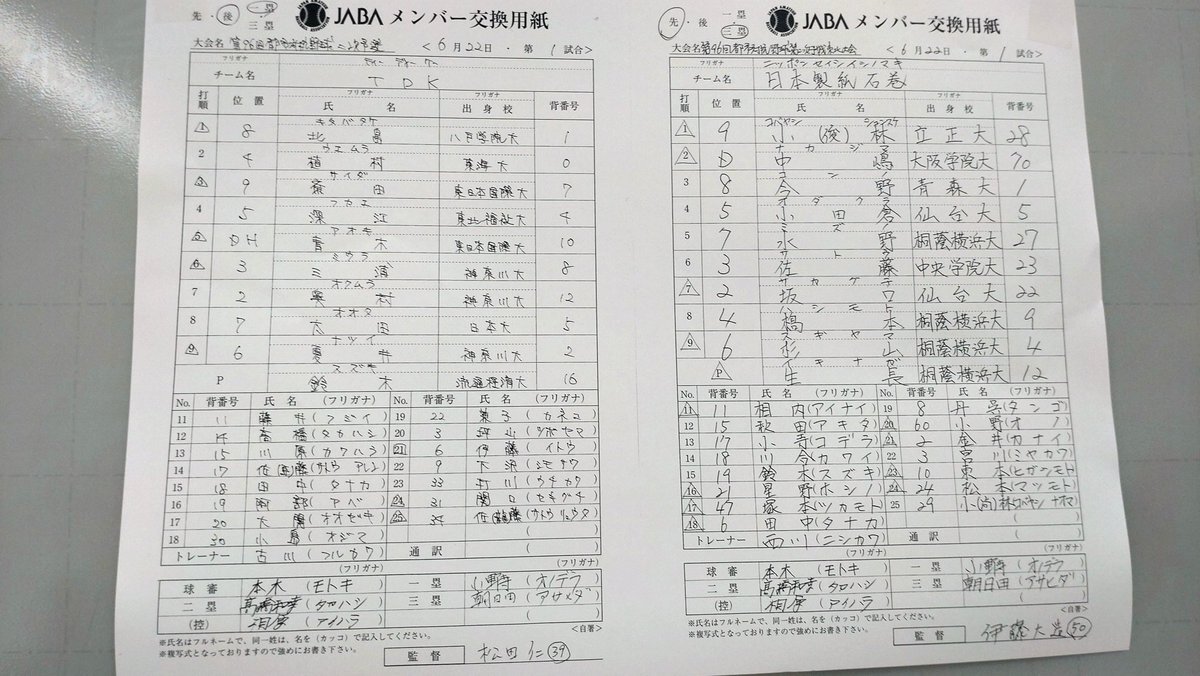 先・後 一塁 三塁
JABA メンバー交換用紙
大会名 < 6月22日・第1試合>
フリガナ ティーディーケー
チーム名 TDK
打順 位置 フリガナ 氏名 フリガナ 出身校 背番号
1 8 キタバタケ 北畠 八戸学院大 1
2 4 ウエムラ 植村 東海大 0
3 9 サイダ 齋田 東日本国際大 7
4 5 フカエ 深江 東北福祉大 4
5 DH アオキ 青木 東日本国際大 10
6 3 ミウラ 三浦 神奈川大 8
7 2 オクムラ 奥村 神奈川大 12
8 7 オオタ 太田 日本大 5
9 6 ナツイ 夏井 神奈川大 2
P スズキ 鈴木 流通経済大 16
No. 背番号 氏名 (フリガナ) No. 背番号 氏名 (フリガナ)
11 11 藤井(フジイ) 19 22 金子(カネコ)
12 14 高橋(タカハシ) 20 3
13 15 川原(カワハラ) 21 6 伊藤(イトウ)
14 17 佐藤(サトウ アレン) 22 9
15 18 田中(タナカ) 23 33 打川(ウチカワ)
16 19 阿部(アベ) 24 31 関口(セキグチ)
17 20 大関(オオゼキ) 25 34 佐藤(サトウリュウタ)
18 30 小島(オジマ)
トレーナー 古川(フルカワ) 通訳
(フリガナ) (フリガナ)
球審 本木(モトキ) 一塁 小野寺(オノデラ)
二塁 高橋和幸(タカハシ) 三塁 朝日田(アサヒダ)
(控) 相原(アイハラ)
<自署>
※氏名はフルネームで、同一姓は、名を(カッコ)で記入してください。
※複写式となっておりますので強めにお書き下さい。
監督 松田 仁 39
先・後 一塁 三塁
JABA メンバー交換用紙
大会名 第96回都市対抗野球第二次予選東北大会 < 6月22日・第1試合>
フリガナ ニッポンセイシイシノマキ
チーム名 日本製紙石巻
打順 位置 フリガナ 氏名 フリガナ 出身校 背番号
1 9 コバヤシ シュンスケ 小(俊)林 立正大 28
2 D ナカジマ 中嶋 大阪学院大 70
3 8 コンノ 今野 青森大 1
4 5 オダクラ 小田倉 仙台大 5
5 7 ミズノ 水野 桐蔭横浜大 27
6 3 サトウ 佐藤 中央学院大 23
7 2 サカグチ 坂口 仙台大 22
8 4 ハシモト 橋本 桐蔭横浜大 9
9 6 スギヤマ 杉山 桐蔭横浜大 4
P イキナガ 生長 桐蔭横浜大 12
No. 背番号 氏名 (フリガナ) No. 背番号 氏名 (フリガナ)
11 11 相内(アイナイ) 19 8 丹呉(タンゴ)
12 15 秋田(アキタ) 20 60 小野(オノ)
13 17 小寺(コデラ) 21 2 金井(カナイ)
14 18 川合(カワイ) 22 3 宮川(ミヤカワ)
15 19 鈴木(スズキ) 23 10 東本(ヒガシモト)
16 21 星野(ホシノ) 24 24 松本(マツモト)
17 47 塚本(ツカモト) 25 29 小(尚)林(コバヤシ ナオマ)
18 6 田中(タナカ)
トレーナー 西川(ニシカワ) 通訳
(フリガナ) (フリガナ)
球審 本木(モトキ) 一塁 小野寺(オノデラ)
二塁 高橋和幸(タカハシ) 三塁 朝日田(アサヒダ)
(控) 相原(アイハラ)
<自署>
※氏名はフルネームで、同一姓は、名を(カッコ)で記入してください。
※複写式となっておりますので強めにお書き下さい。
監督 伊藤大造 50